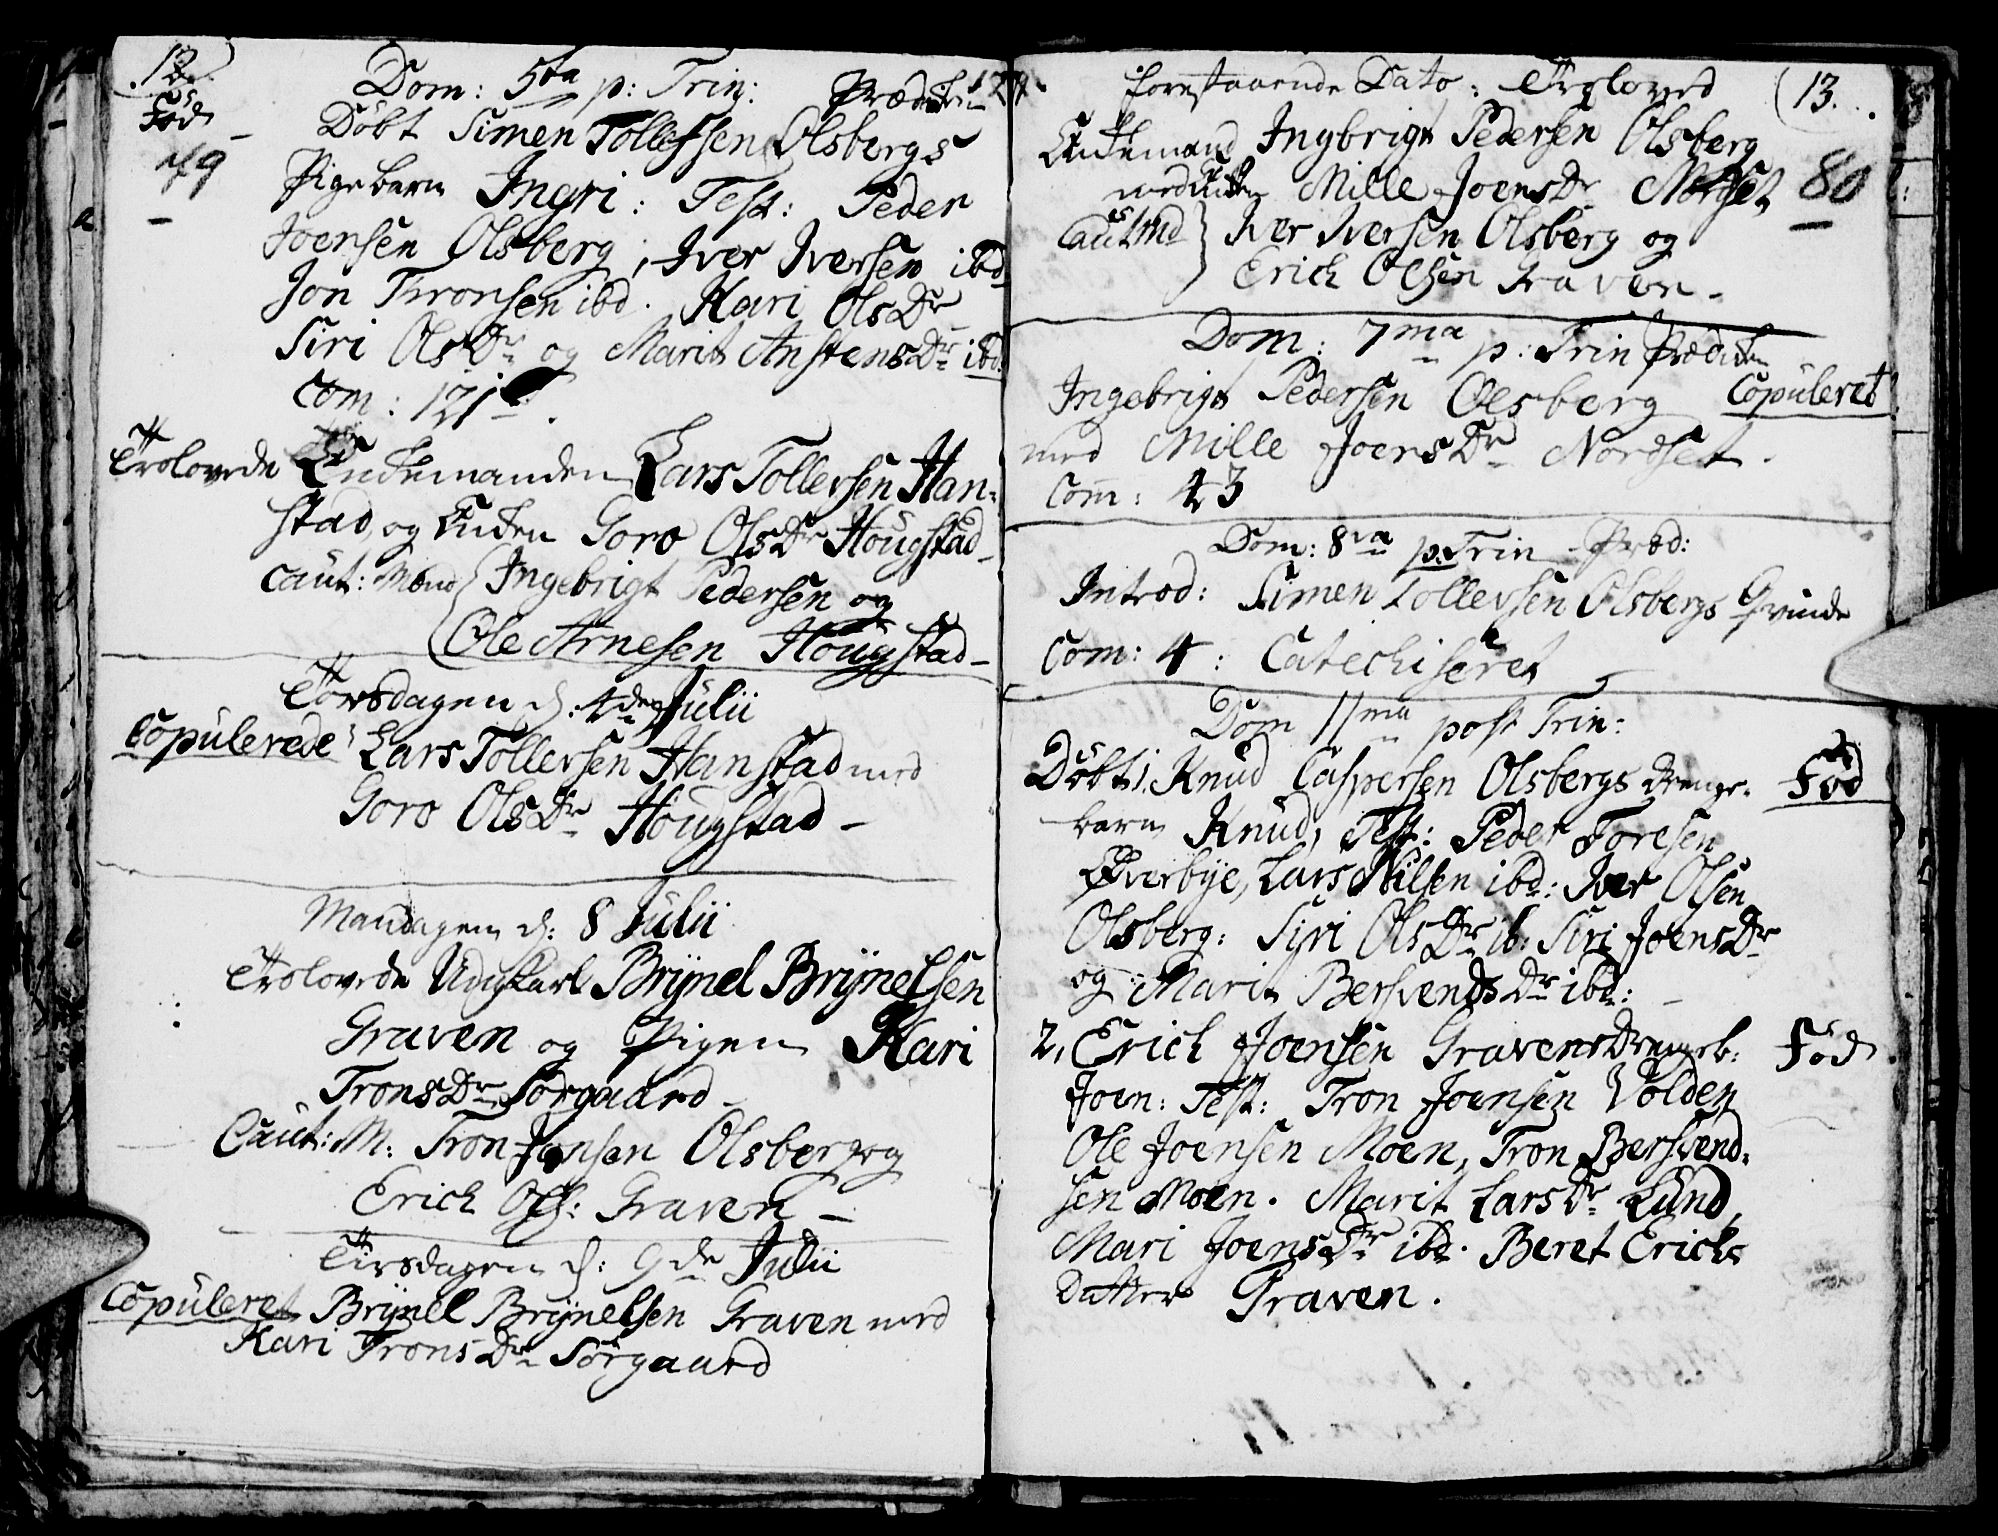 12.
Dom: 5ta p: Trin: Prædiken
Föd
Döbt Simen Tollefsen Olsbergs
79
Pigebarn Ingri: Test: Peder
Joensen Olsberg, Iver Iversen ibd
Jon Tronsen ibd. Kari OlsDr
Siri OlsDr og Marit AnstensDr ibd.
Com: 121
Trolovede Enkemanden Lars Tollevsen Han-
stad, og Enken Goro OlsDr Hougstad
Caut: Mænd Ingebrigt Pedersen og
Ole Arnesen Hougstad
Torsdagen d: 4de Julii
Copulerede Lars Tollevsen Hanstad med
Goro OlsDr Hougstad
Mandagen d: 8 Julii
Trolovede Ungkarl Brÿnel Brÿnelsen
Graven og Pigen Kari
TronsDr Sörgaard
Caut: M: Tron Jonsen Olsberg og
Erich Ols: Graven
Tirsdagen d: 9de Julii
Copuleret Brÿnel Brÿnelsen Graven med
Kari TronsDr Sörgaard
forestaaende Dato: Troloved
13.
Enkemand Ingbrigt Pedersen Olsberg
med Enken Mille JoensDr Norset
80
Cautmd Iver Iversen Olsberg og
Erich Olsen Graven.
Dom: 7ma p: Trin Prædiken
Ingebrigt Pedersen Olsberg Copuleret
med Mille JoensDr Nordset.
Com: 43
Dom: 8va p: Trin Præd:
Introd: Simen Tollevsen Olsbergs Qvinde
Com: 4: Catechiseret
Dom 11ma post Trin:
Döbt 1, Knud Caspersen Olsbergs Drenge- Föd
barn Knud, Test: Peder Toresen
Øverbÿe, Lars Nilsen ibd: Iver Olsen
Olsberg: Siri OlsDr ib: Siri JoensDr
og Marit BersvendsDr ibd:
2, Erich Joensen Gravens Drengeb: Föd
Joen: Test: Tron Joensen Volden
Ole Joensen Moen, Tron Bersvend-
sen Moen. Marit LarsDr Lund,
Mari JoensDr ibd. Beret Erichs
Datter Graven.